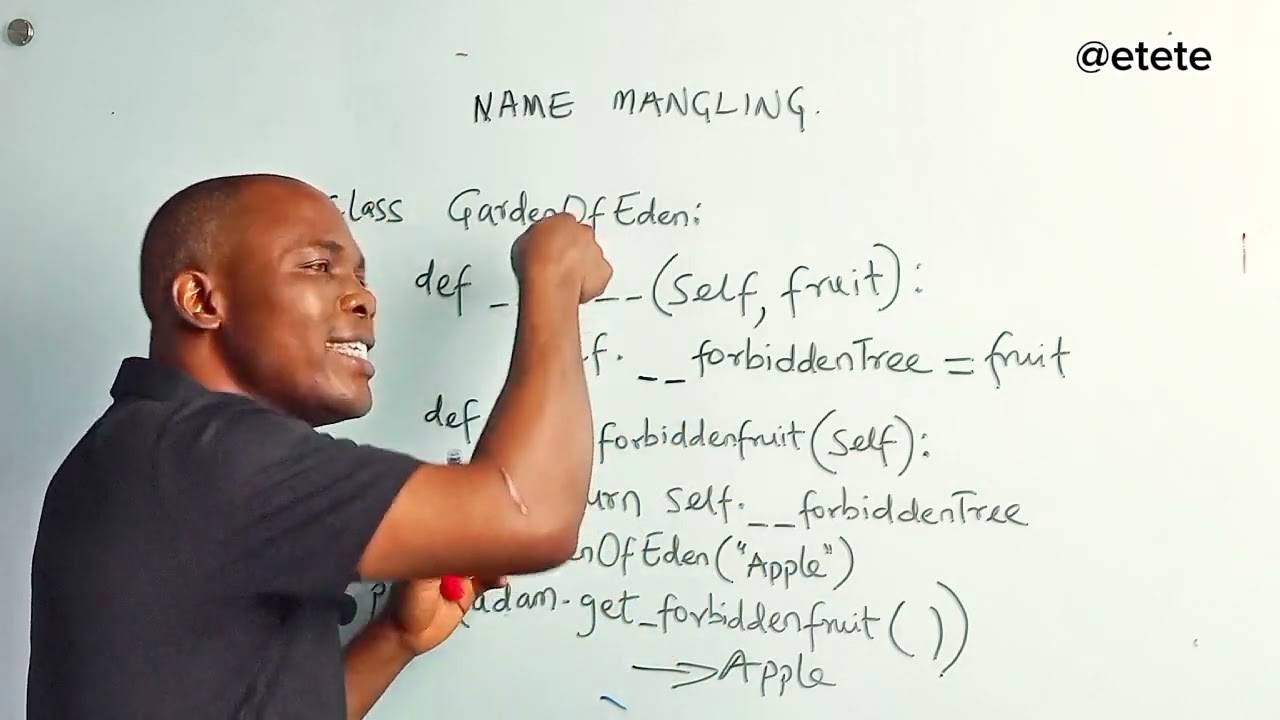 @etete
NAME MANGLING.
class GardenOfEden:
def __(self, fruit):
f.__forbiddenTree = fruit
def forbiddenfruit(self):
urn self.__forbiddenTree
nOfEden("Apple")
adam.get_forbiddenfruit())
→Apple